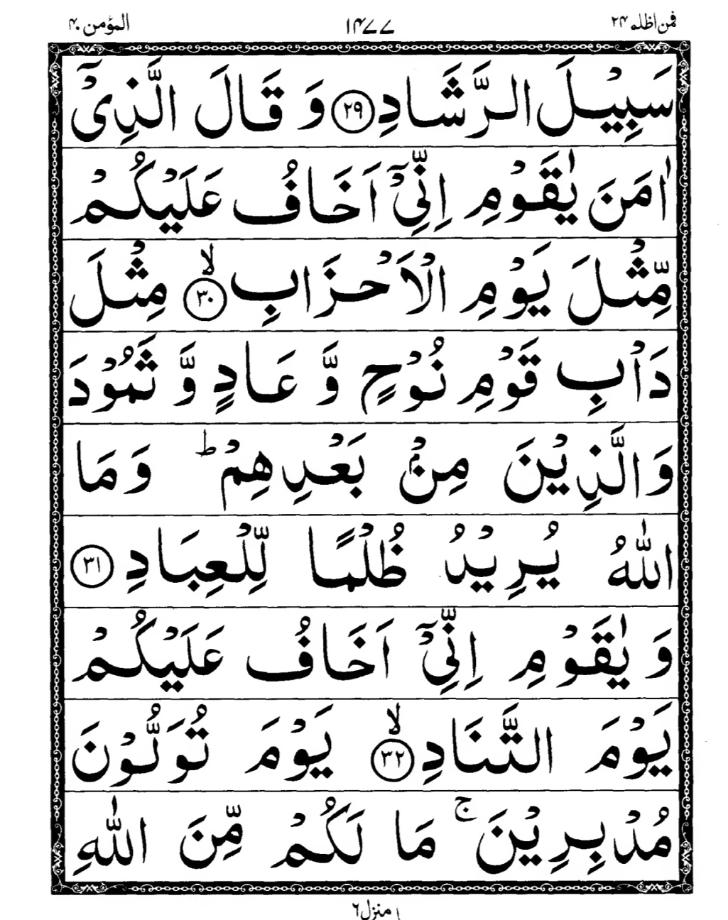 فمن اظلم ۲۴
۱۴۷۷
المؤمن ۴۰
سَبِيْلَ الرَّشَادِ ﴿۲۹﴾ وَ قَالَ الَّذِيْۤ
اٰمَنَ يٰقَوْمِ اِنِّيْۤ اَخَافُ عَلَيْكُمْ
مِّثْلَ يَوْمِ الْاَحْزَابِ ﴿۳۰﴾ۙ مِثْلَ
دَاْبِ قَوْمِ نُوْحٍ وَّ عَادٍ وَّ ثَمُوْدَ
وَالَّذِيْنَ مِنْۢ بَعْدِهِمْ ؕ وَمَا
اللّٰهُ يُرِيْدُ ظُلْمًا لِّلْعِبَادِ ﴿۳۱﴾
وَ يٰقَوْمِ اِنِّيْۤ اَخَافُ عَلَيْكُمْ
يَوْمَ التَّنَادِ ﴿۳۲﴾ۙ يَوْمَ تُوَلُّوْنَ
مُدْبِرِيْنَ ۚ مَا لَكُمْ مِّنَ اللّٰهِ
منزل ٦